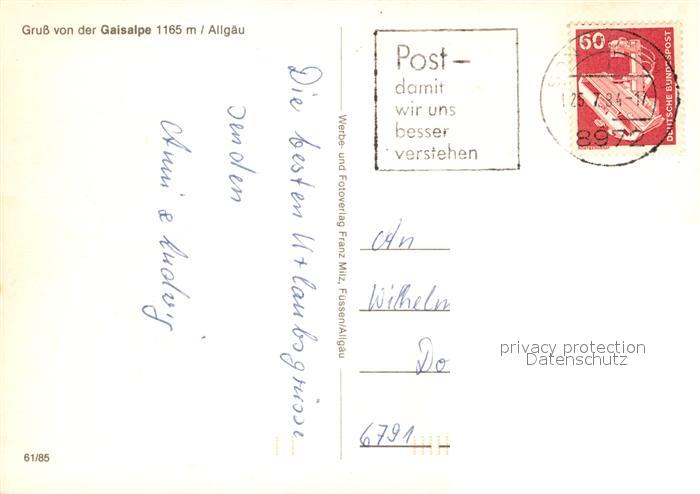 Gruß von der Gaisalpe 1165 m / Allgäu
Die besten Urlaubsgrüsse
senden
Anni & Ludwig
61/85
Werbe- und Fotoverlag Franz Milz, Füssen/Allgäu
Post-
damit
wir uns
besser
verstehen
60
DEUTSCHE BUNDESPOST
25.7.84-17
8972
An
Wilhelm
Do
6791
privacy protection
Datenschutz